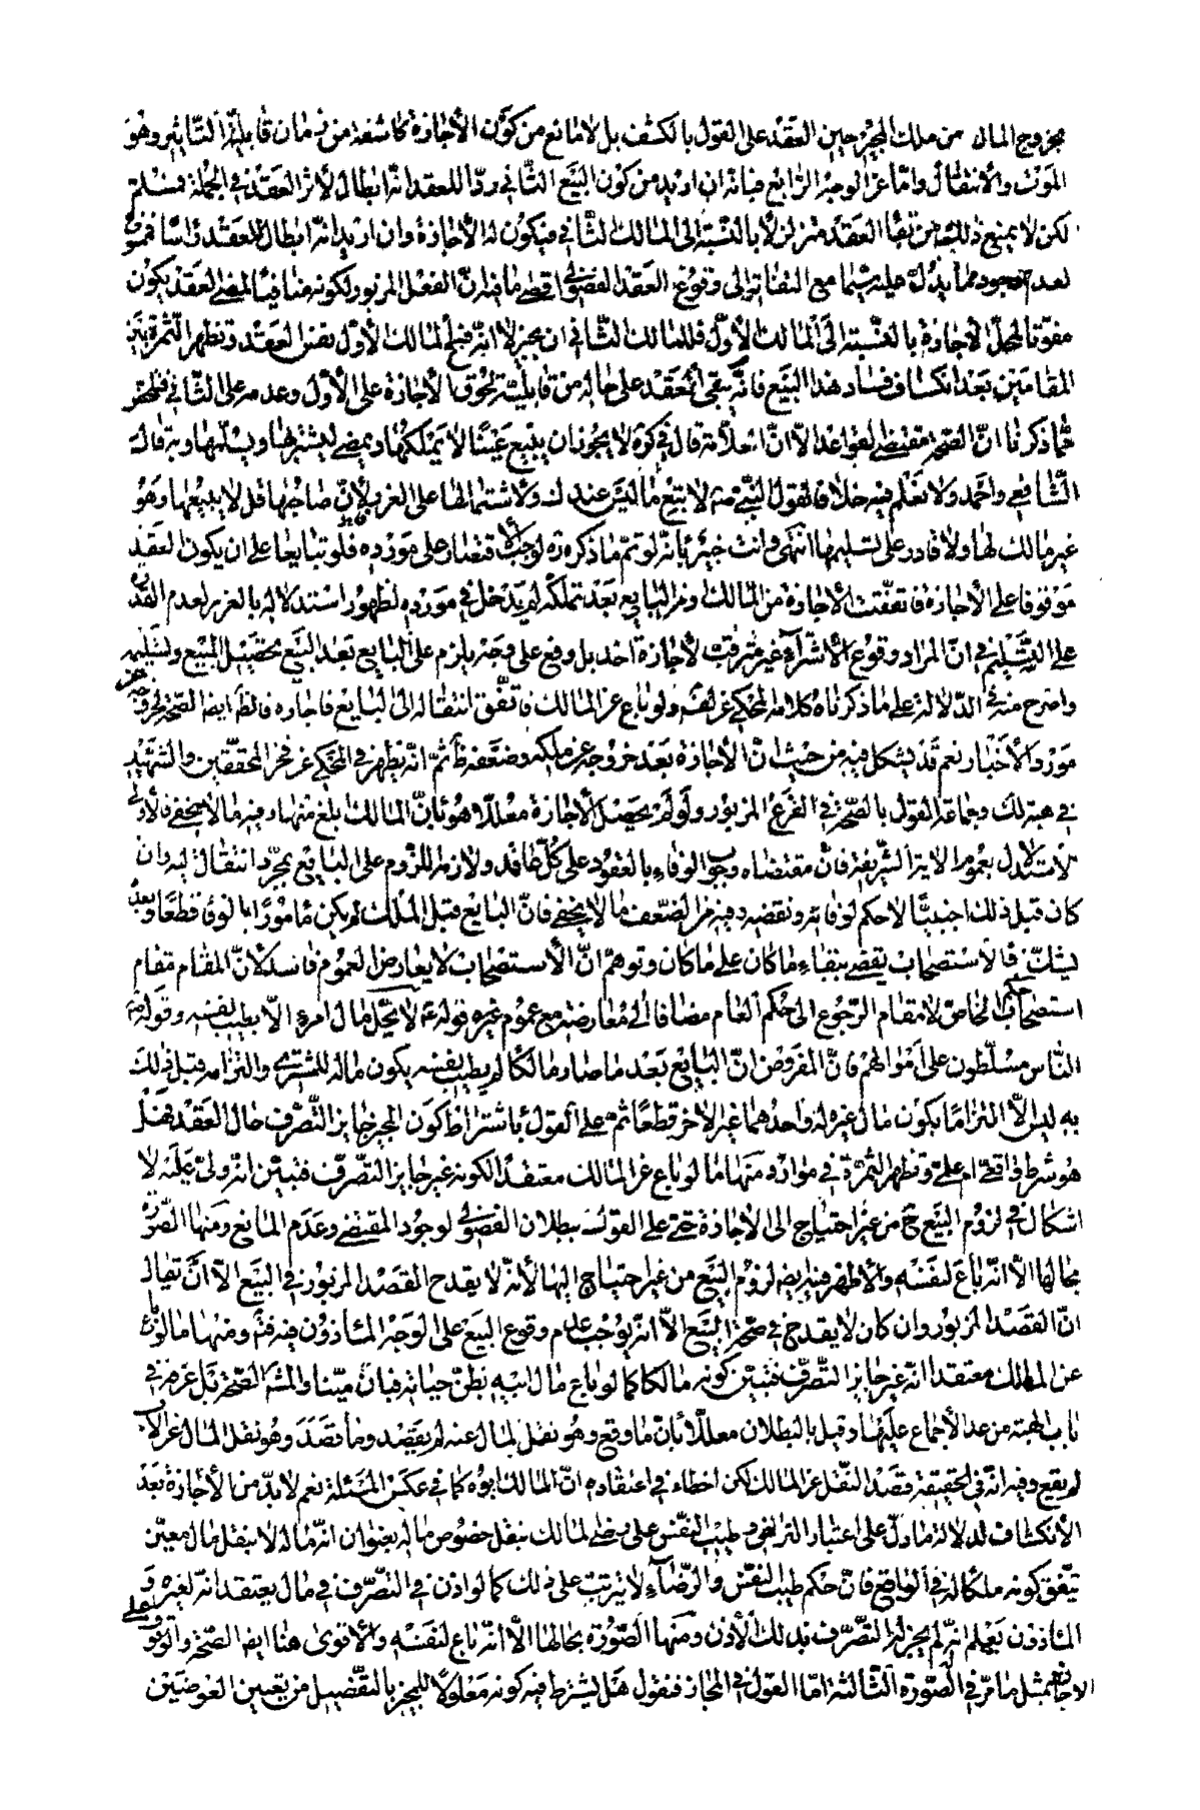 بخروج المال من ملك المجيز حين العقد على القول بالكشف بل لا مانع من كون الأجازة كاشفة من زمان قابلية التاثير وهو
الموت والأنتقال وامّا عن الوجه الرّابع فبانه ان اريد من كون البيع الثّاني ردّا للعقد انّه ابطال لأثر العقد في الجملة فمسلّم
لكن لا يمنع ذلك من بقاء العقد متزلزلاً بالنّسبة الى المالك الثّاني فيكون له الأجازة وان اريد انّه ابطال للعقد راسًا فممنوع
لعدم وجود ما يدلّ عليه سيّما مع التفاته الى وقوع العقد الفضولي اقصى ما فيه انّ الفعل المزبور لكونه منافيًا لمضىّ العقد يكون
مفوّتا لمحلّ الأجازة بالنّسبة الى المالك الأوّل فللمالك الثّاني ان يجيز لا انّه فسخ المالك الأوّل نفس العقد وتظهر الثّمرة بين
المقامين بعد انكشاف فساد هذا البيع فانّه يبقى العقد على حاله من قابليّة لحوق الأجازة على الأوّل وعدمه على الثّاني فظهر
ممّا ذكرنا انّ الصّحة مقتضى القواعد الاّ انّ العلاّمة قال في كره لا يجوز ان يبيع عينًا لا يملكها ويمضي ليشتريها ويسلّمها وبه قال
الشّافعي واحمد ولا نعلم فيه خلافا لقول النّبي ص لا تبع ما ليس عندك ولاشتمالها على الغرر لأنّ صاحبها قد لا يبيعها وهو
غير مالك لها ولا قادر على تسليمها انتهى وانت خبير بانّه لو تمّ ما ذكره ره لوجب الاقتصار على مورده فلو تبايعا على ان يكون العقد
موقوفا على الأجازة فاتّفقت الأجازة من المالك او من البايع بعد تملّكه لم يدخل في مورده لظهور استدلاله بالغرر لعدم القدرة
على التّسليم في انّ المراد وقوع الأشتراء غير مترقّب لأجازة احد بل وقع على وجه يلزم على البايع بعد البيع تحصيل المبيع وتسليمه
واصرح منه في الدّلالة على ما ذكرناه كلامه المحكي عن لف ولو باع عن المالك فاتّفق انتقاله الى البايع فاجازه فالظ ايضا الصّحة لخروجه عن
مورد الأخبار نعم قد يشكل فيه من حيث انّ الأجازة بعد خروجه عن ملكه وضعّفه ظ ثمّ انّه يظهر في المحكي عن فخر المحققين والشّهيد
في هبة لك وجماعة القول بالصّحة في الفرع المزبور ولو لم يحصل الأجازة معلّلا هو بانّ المالك بلغ منتهاه وفيه ما لا يخفى فالأولى
الأستدلال بعموم الاية الشّريفة فانّ مقتضاه وجوب الوفاء بالعقود على كلّ عاقد ولازمه اللزوم على البايع بمجرّد انتقاله له وان
كان قبل ذلك اجنبيًّا لا حكم لوفائه ونقضه وفيه من الضّعف ما لا يخفى فانّ البايع قبل الملك لم يكن مامورًا بالوفا قطعًا وبعده
يشك فالاستصحاب يقضي ببقاء ما كان على ما كان وتوهّم انّ الأستصحاب لا يعارض العموم فاسد لأنّ المقام مقام
استصحاب حكم الخاصّ لا مقام الرّجوع الى حكم العام مضافا الى معارضته مع عموم غيره قوله ع لا يحلّ مال امرء الاّ بطيب نفسه وقوله ص
النّاس مسلّطون على اموالهم فانّ المفروض انّ البايع بعد ما صار مالكًا لم يطب نفسه بكون ماله للمشتري والتزامه قبل ذلك
به ليس الاّ التزامًا بكون مال غيره له واحدهما غير الاخر قطعًا ثم على القول باشتراط كون المجيز جايز التّصرّف حال العقد فهل
هو شرط واقعي ام علمي وتظهر الثّمرة في موارد منها ما لو باع عن المالك معتقدًا لكونه غير جايز التصرّف فتبيّن انّه وليّ عليه لا
اشكال في لزوم البيع ح من غير احتياج الى الاجازة حتى على القول ببطلان الفضولي لوجود المقتضي وعدم المانع ومنها الصّورة
بحالها الاّ انّه باع لنفسه والأظهر فيه ايضا لزوم البيع من غير احتياج اليها لأنّه لا يقدح القصد المزبور في البيع الاّ ان يقال
انّ القصد المزبور وان كان لا يقدح في صحّة البيع الاّ انّه يوجب عدم وقوع البيع على الوجه الماذون فيه فتم ومنها ما لو باع
عن المالك معتقدا انّه غير جايز التّصرّف فتبيّن كونه مالكا كما لو باع مال ابيه بظنّ حياته فبان ميّتا والمش الصّحة بل عن ضه في
باب الهبة من عد الأجماع عليها وقيل بالبطلان معلّلاً بانّ ما وقع وهو نقل المال عنه لم يقصد وما قصد وهو نقل المال عن الأب
لم يقع وفيه انّه في الحقيقة قصد النّقل عن المالك لكن اخطاء في اعتقاده انّ المالك ابوه كما في عكس المسئلة نعم لا بدّ من الأجازة بعد
الأنكشاف لدلالة ما دلّ على اعتبار التراضي وطيب النّفس على رضى المالك بنقل خصوص ماله بعنوان انّه ماله لا بنقل مال معيّن
يتّفق كونه ملكًا له في الواقع فانّ حكم طيب النفس والرّضاء لا يترتب على ذلك كما لو اذن في التصرّف في مال يعتقد انّه لغيره و
الماذون يعلم انّه له لم يجز له التصرّف بذلك الأذن ومنها الصّورة بحالها الاّ انّه باع لنفسه والأقوى هنا ايضا الصّحة والوقوف على
الاجازة بمثل ما مرّ في الصّورة الثّالثة امّا القول في المجاز فنقول هل يشترط فيه كونه معلومًا للمجيز بالتّفصيل من تعيين العوضين